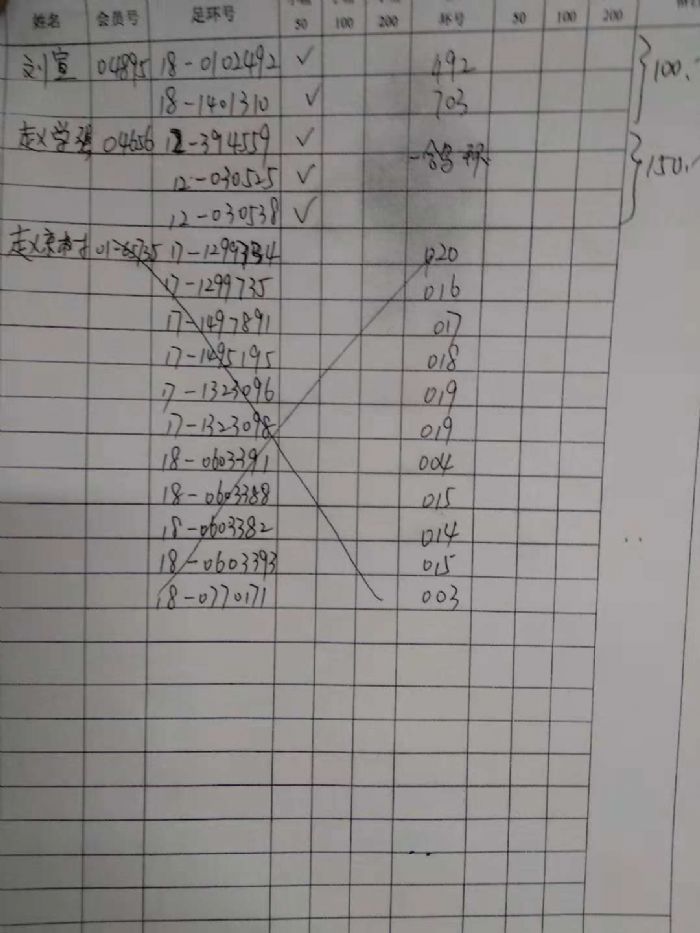 姓名 会员号 足环号 50 100 200 环号 50 100 200
刘宣 04895 18-0102492 ✓ 492 100.
18-1401310 ✓ 703
赵义学 04656 12-394559 ✓ 150.
12-030525 ✓
12-030538 ✓
020
17-1299735 016
17-1497891 017
17-1495195 018
17-1323096 019
17-1323098 019
18-0603391 004
18-0603388 015
18-0603382 014
18-0603393 015
18-0770171 003